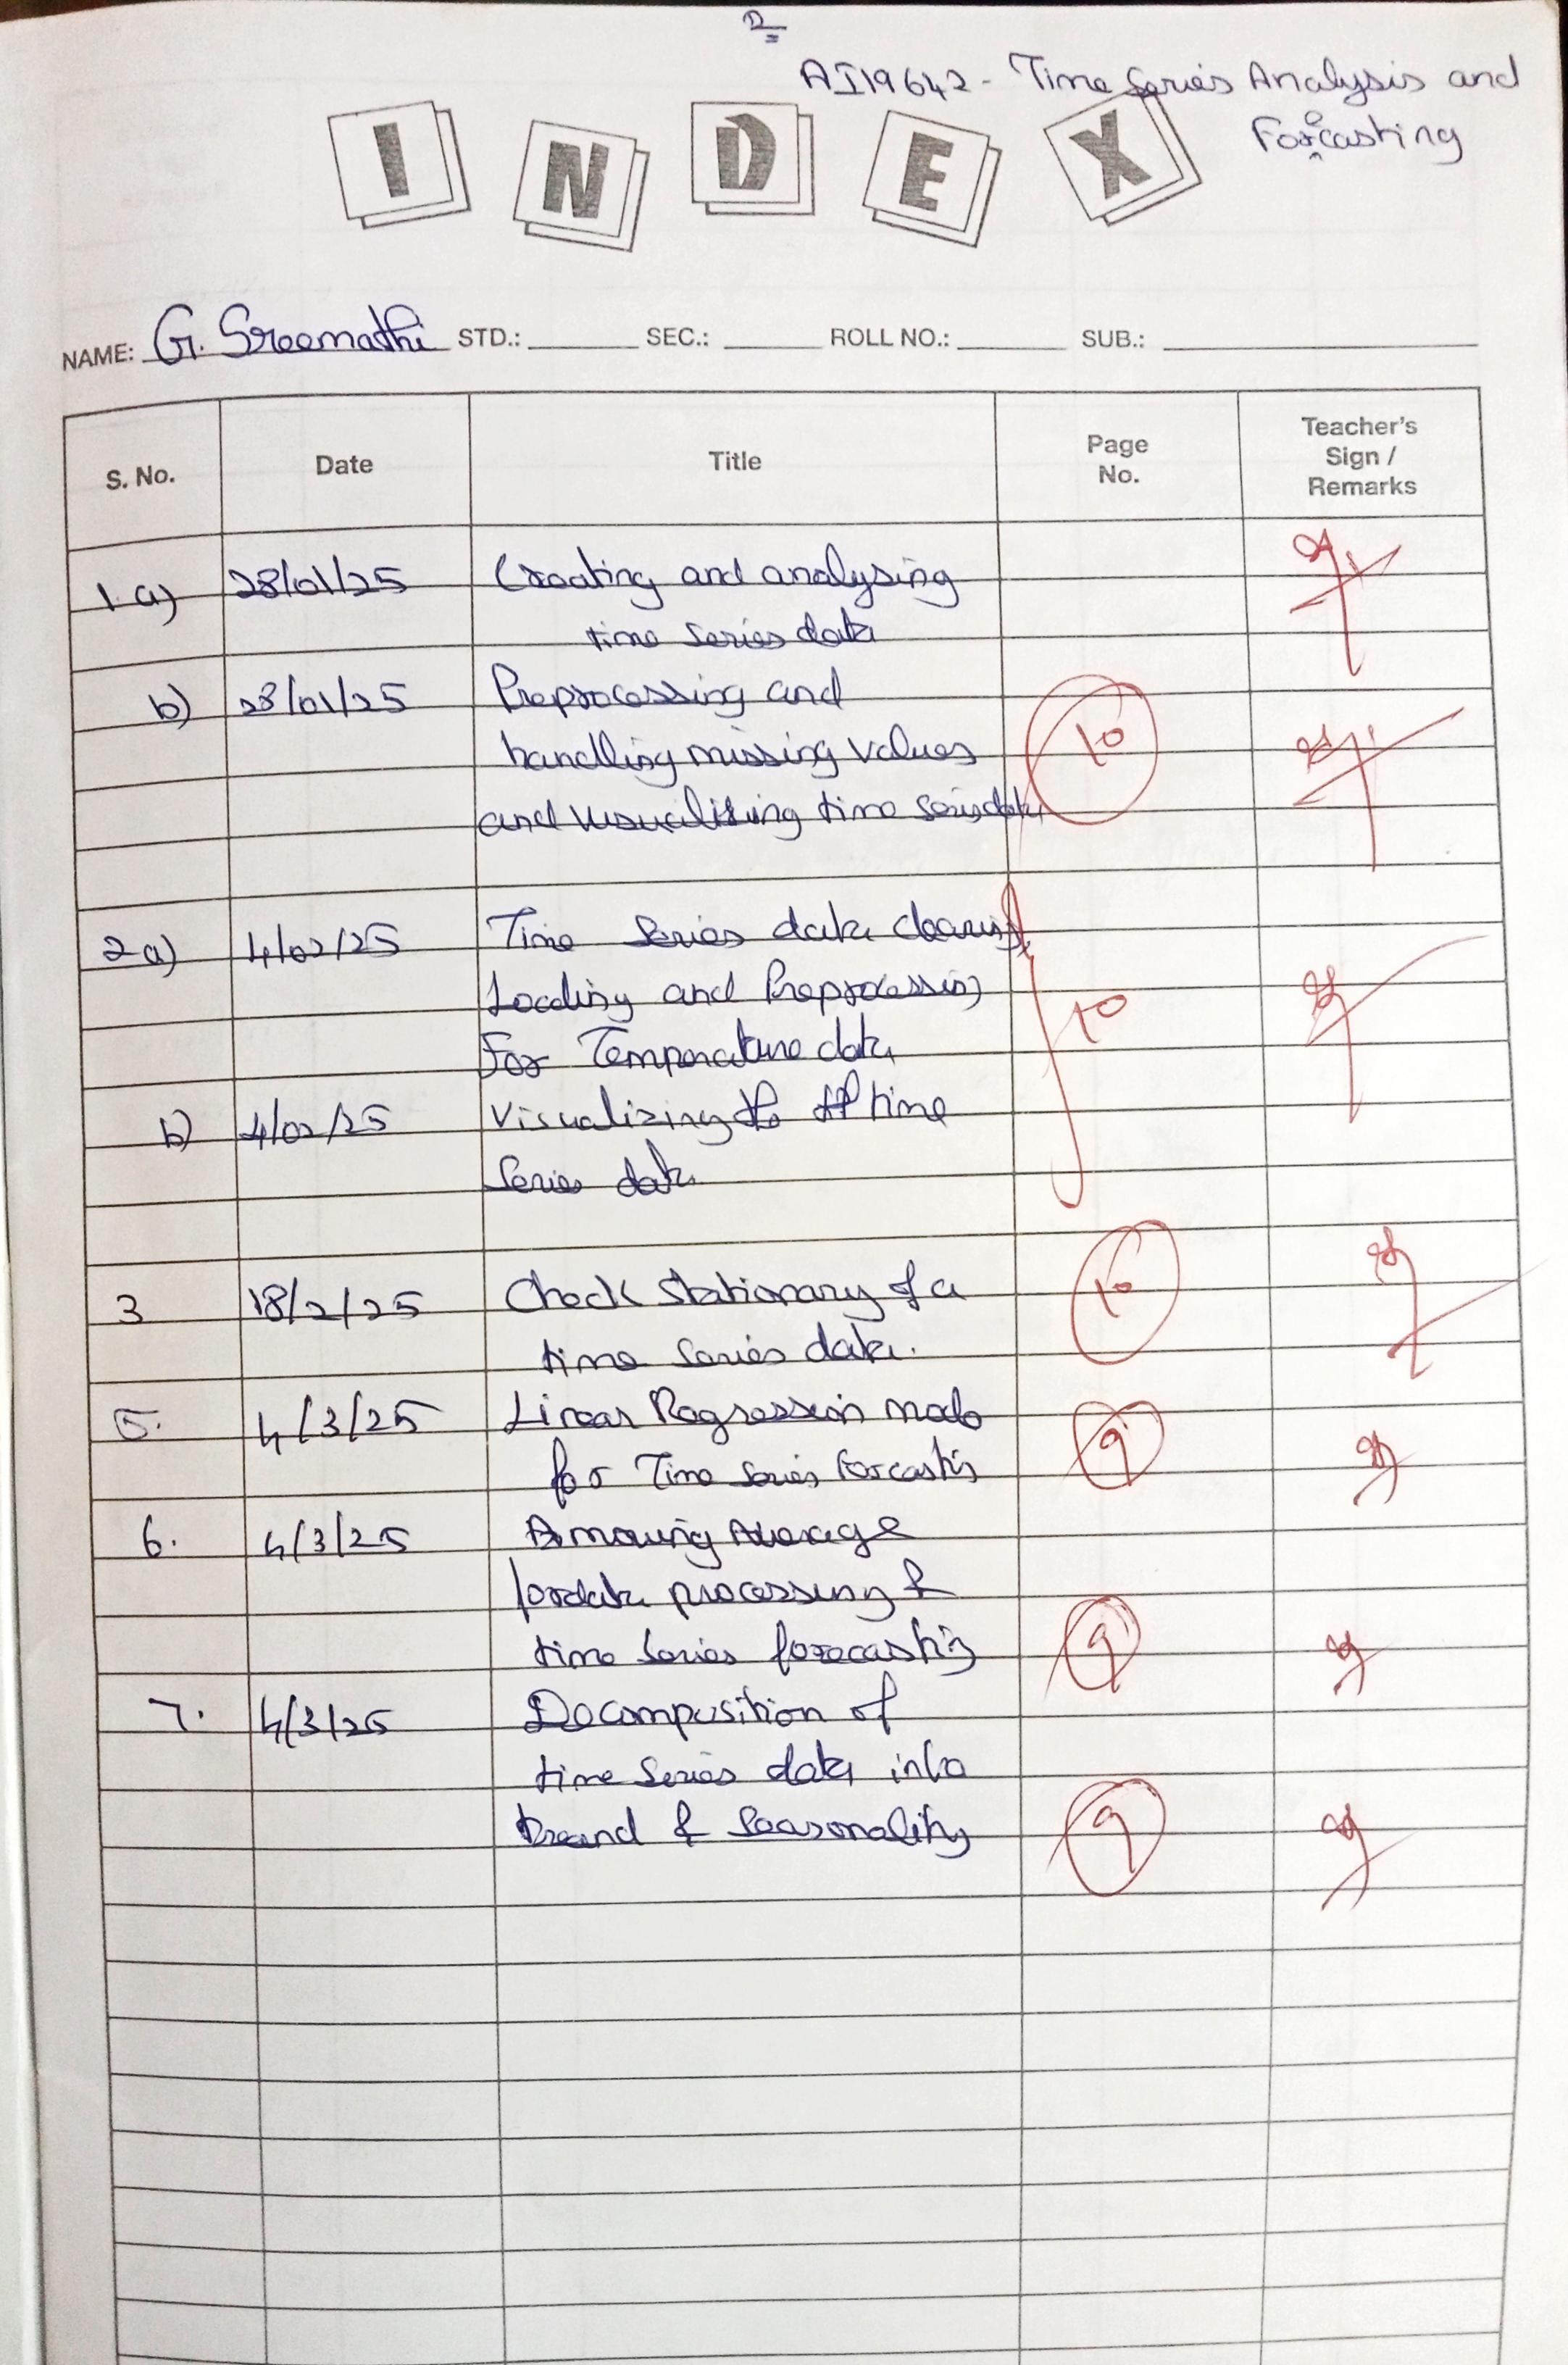 AI19642 - Time Series Analysis and
Forecasting
INDEX
NAME: G. Sreemathi STD.: SEC.: ROLL NO.: SUB.:
S. No. Date Title Page No. Teacher's Sign / Remarks
1 a) 28/01/25 Creating and analysing
time series data
b) 28/01/25 Preprocessing and
handling missing values 10
and visualizing time series data
2 a) 4/02/25 Time Series data cleaning,
Loading and Preprocessing 10
For Temperature data
b) 4/02/25 Visualizing time
Series data
3 18/2/25 Check Stationary of a 10
time series data.
5. 4/3/25 Linear Regression 9
for Time Series Forcastin
6. 4/3/25 moving Average
for data processing &
time series forecasting 9
7. 4/3/25 Decomposition of
time Series data into
trend & Seasonality 9